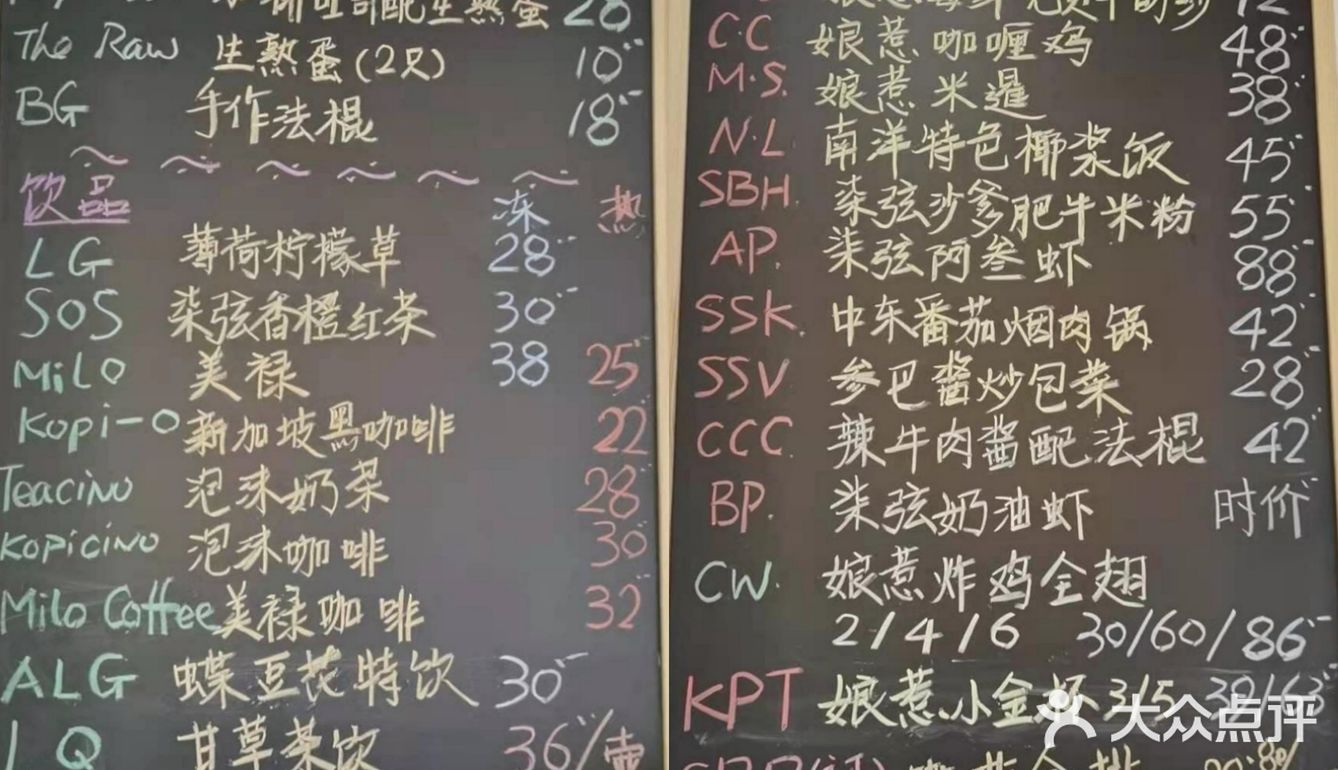 配生熟蛋 28
The Raw 生熟蛋(2只) 10
BG 手作法棍 18
饮品 冻 热
LG 薄荷柠檬草 28
SOS 柒弦香橙红茶 30
MiLO 美禄 38 25
Kopi-O 新加坡黑咖啡 22
Teacino 泡沫奶茶 28
Kopicino 泡沫咖啡 30
Milo Coffee 美禄咖啡 32
ALG 蝶豆花特饮 30
LQ 甘草茶饮 36/壶
C.C 娘惹咖喱鸡 48
M.S. 娘惹米暹 38
N.L 南洋特色椰浆饭 45
SBH 柒弦沙爹肥牛米粉 55
AP. 柒弦阿叁虾 88
SSK. 中东番茄烟肉锅 42
SSV 参巴酱炒包菜 28
CCC 辣牛肉酱配法棍 42
BP. 柒弦奶油虾 时价
CW. 娘惹炸鸡全翅
2/4/6 30/60/86
KPT 娘惹小金杯 3/5 39/63
大众点评